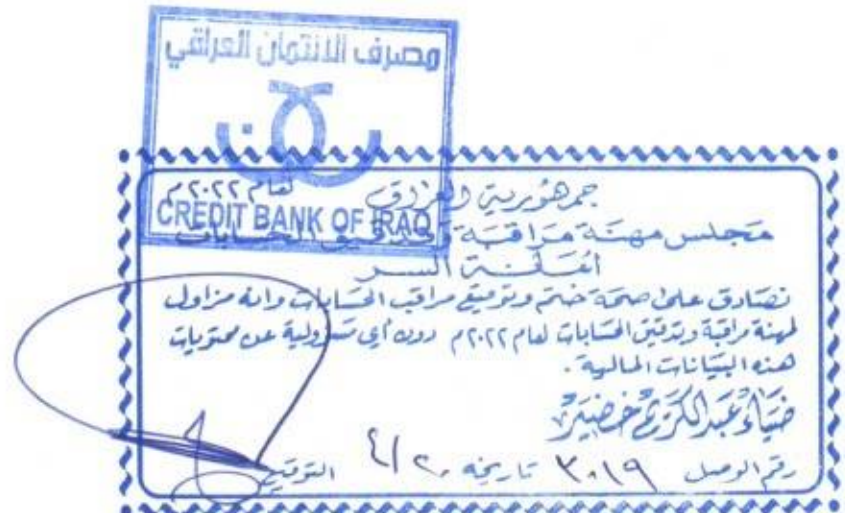 مصرف الائتمان العراقي
CREDIT BANK OF IRAQ
جمهورية العراق
لعام ٢٠٢٢م
مجلس مهنة مراقبة وتدقيق الحسابات
أمانة السر
نصادق على صحة ختم وتوقيع مراقب الحسابات وانه مزاول
لمهنة مراقبة وتدقيق الحسابات لعام ٢٠٢٢م دون أي مسؤولية عن محتويات
هذه البيانات المالية.
ضياء عبدالكريم خضير
رقم الوصل ٣٠١٩ تاريخه ٤/٢٠ التوقيع